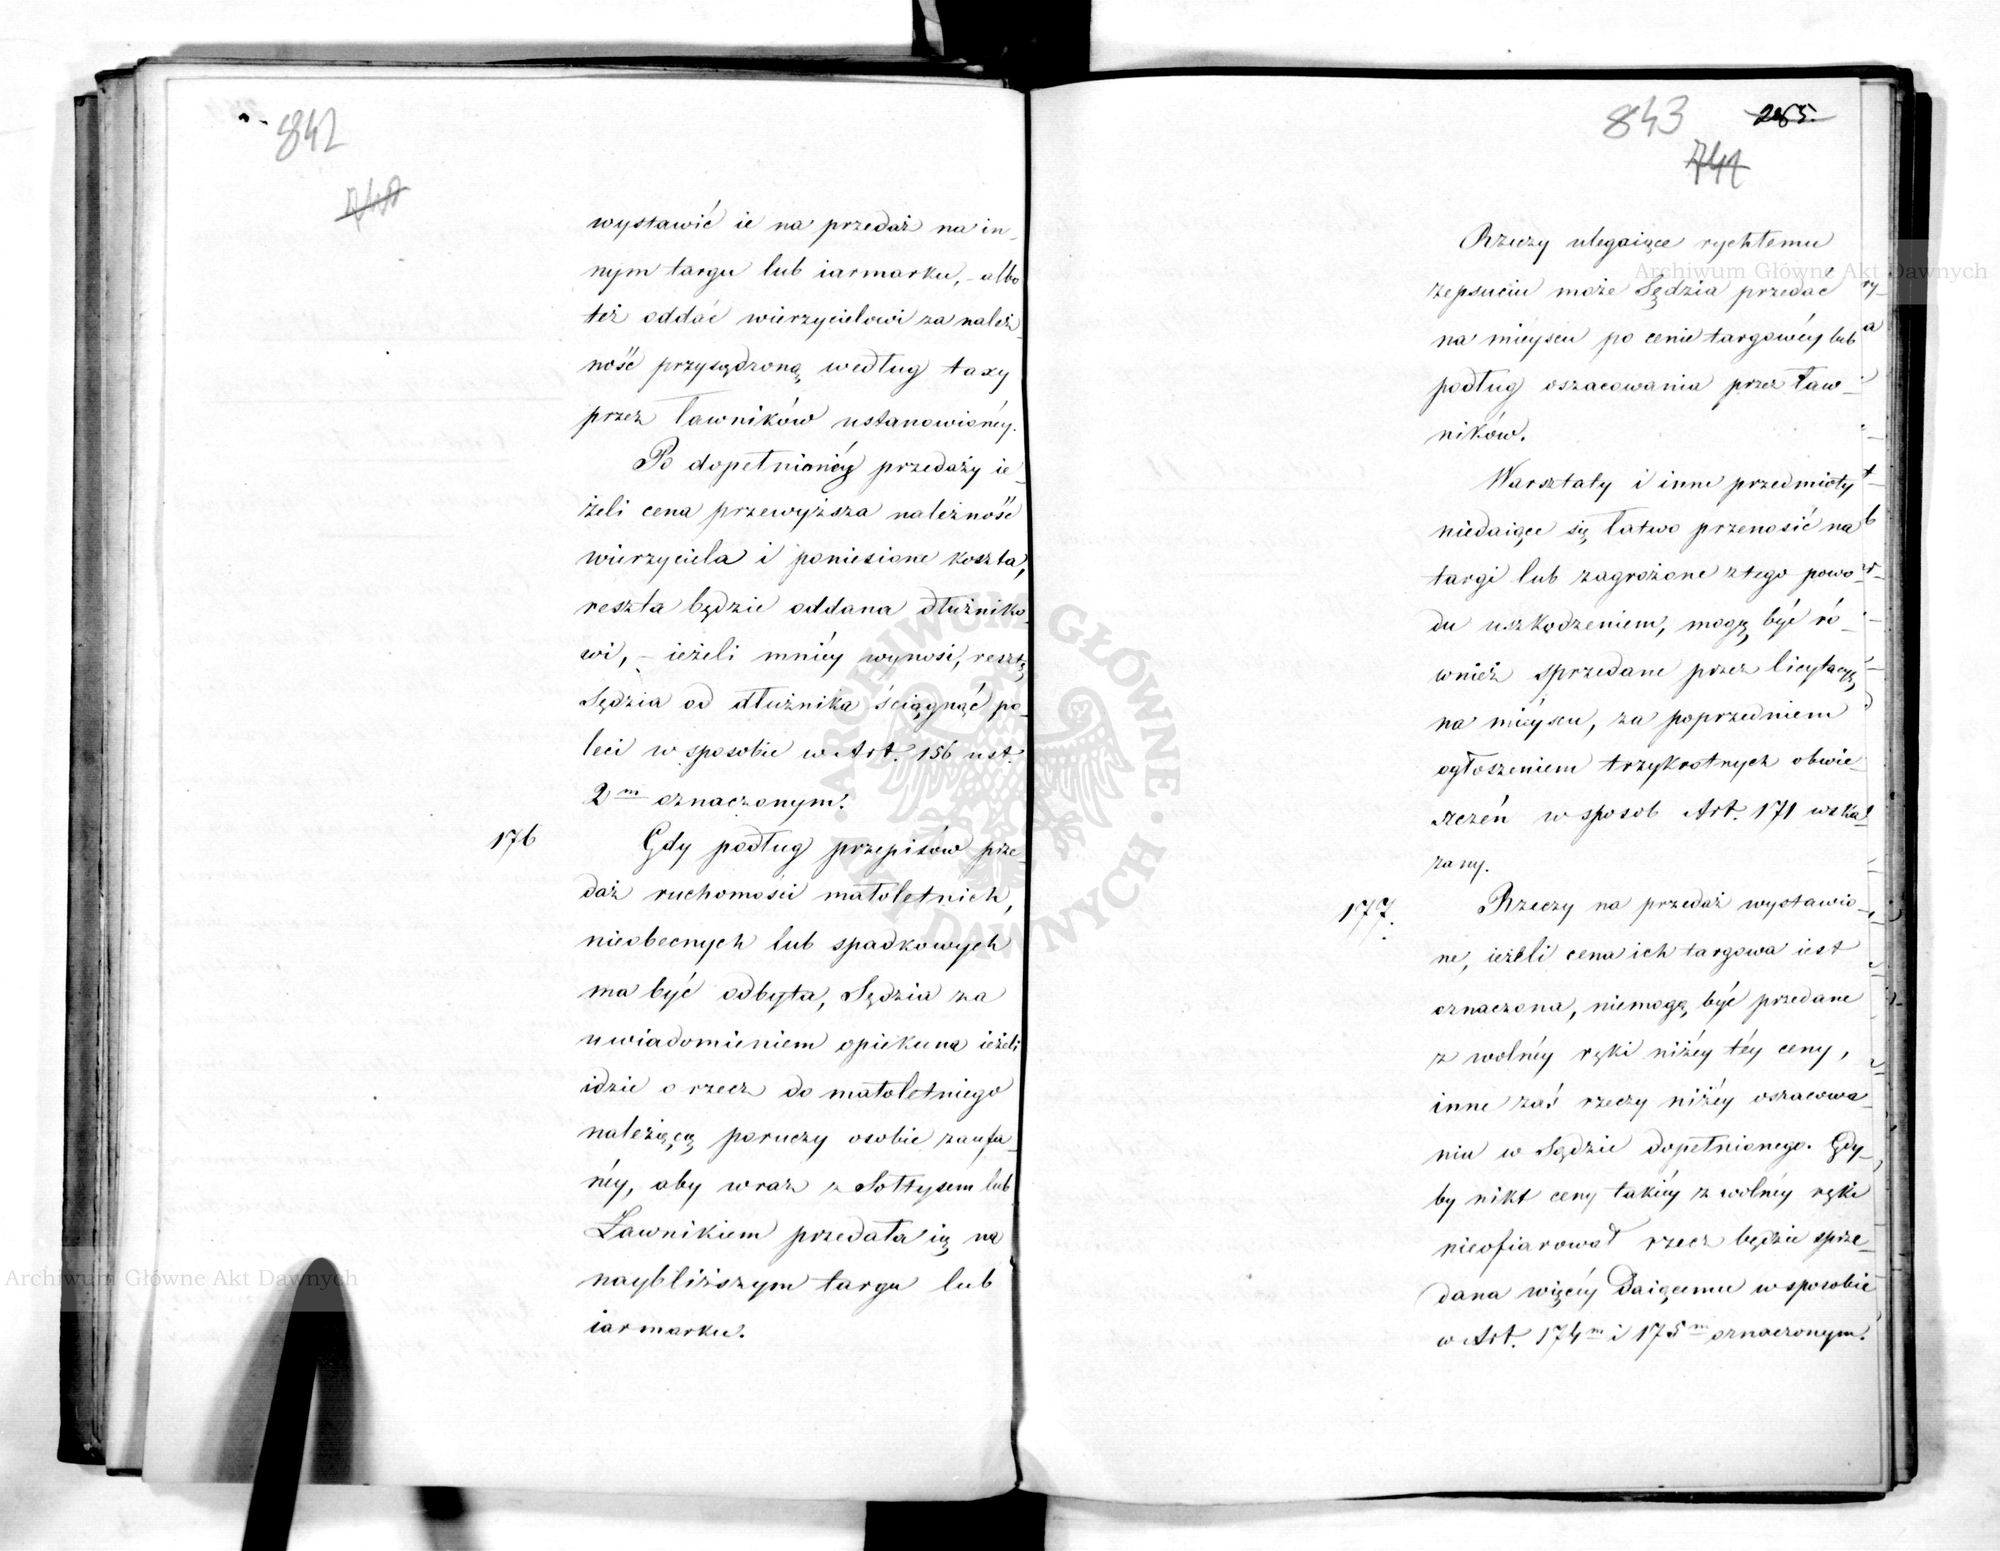 842
wystawić ie na przedaż na in_
nym targu lub iarmarku, _ albo
też oddać wierzycielowi za należ_
ność przysądzoną według taxy
przez Ławników ustanowionéy.
Po dopełnionéy przedaży ie_
żeli cena przewyższa należność
wierzyciela i poniesione koszta,
reszta będzie oddana dłużniko_
wi, _ ieżeli mniéy wynosi, resztę
Sędzia od dłużnika ściągnąć po_
leci w sposobie w Art. 156 ust.
2m oznaczonym.
176
Gdy podług przepisów prze_
daż ruchomości małoletnich,
nieobecnych lub spadkowych
ma być odbyta, Sędzia za
uwiadomieniem opiekuna ieżeli
idzie o rzecz do małoletniego
należącą poruczy osobie zaufa_
néy, aby wraz z Sołtysem lub
Ławnikiem przedała ią na
naybliższym targu lub
iarmarku.
843
265.
741
Rzeczy ulegaiące rychłemu
zepsuciu może Sędzia przedać
na mieyscu po cenie targowéy lub
podług oszacowania przez Ław_
ników.
Warsztaty i inne przedmioty
niedaiące się łatwo przenosić na
targi lub zagrożone z tego powo_
du uszkodzeniem, mogą być ró_
wnież sprzedane przez licytacyę
na mieyscu, za poprzedniem
ogłoszeniem trzykrotnych obwie_
szczeń w sposob Art. 171 wska_
zany.
177.
Rzeczy na przedaż wystawio_
ne, ieżeli cena ich targowa iest
oznaczona, niemogą być przedane
z wolnéy ręki niżéy téy ceny,
inne zaś rzeczy niżéy oszacowa_
nia w Sądzie dopełnionego. Gdy_
by nikt ceny takiéy z wolnéy ręki
nieofiarował rzecz będzie sprze_
dana więcéy daiącemu w sposobie
w Art. 174m i 175m oznaczonym.
Archiwum Główne Akt Dawnych
Archiwum Główne Akt Dawnych
ARCHIWUM GŁÓWNE AKT DAWNYCH